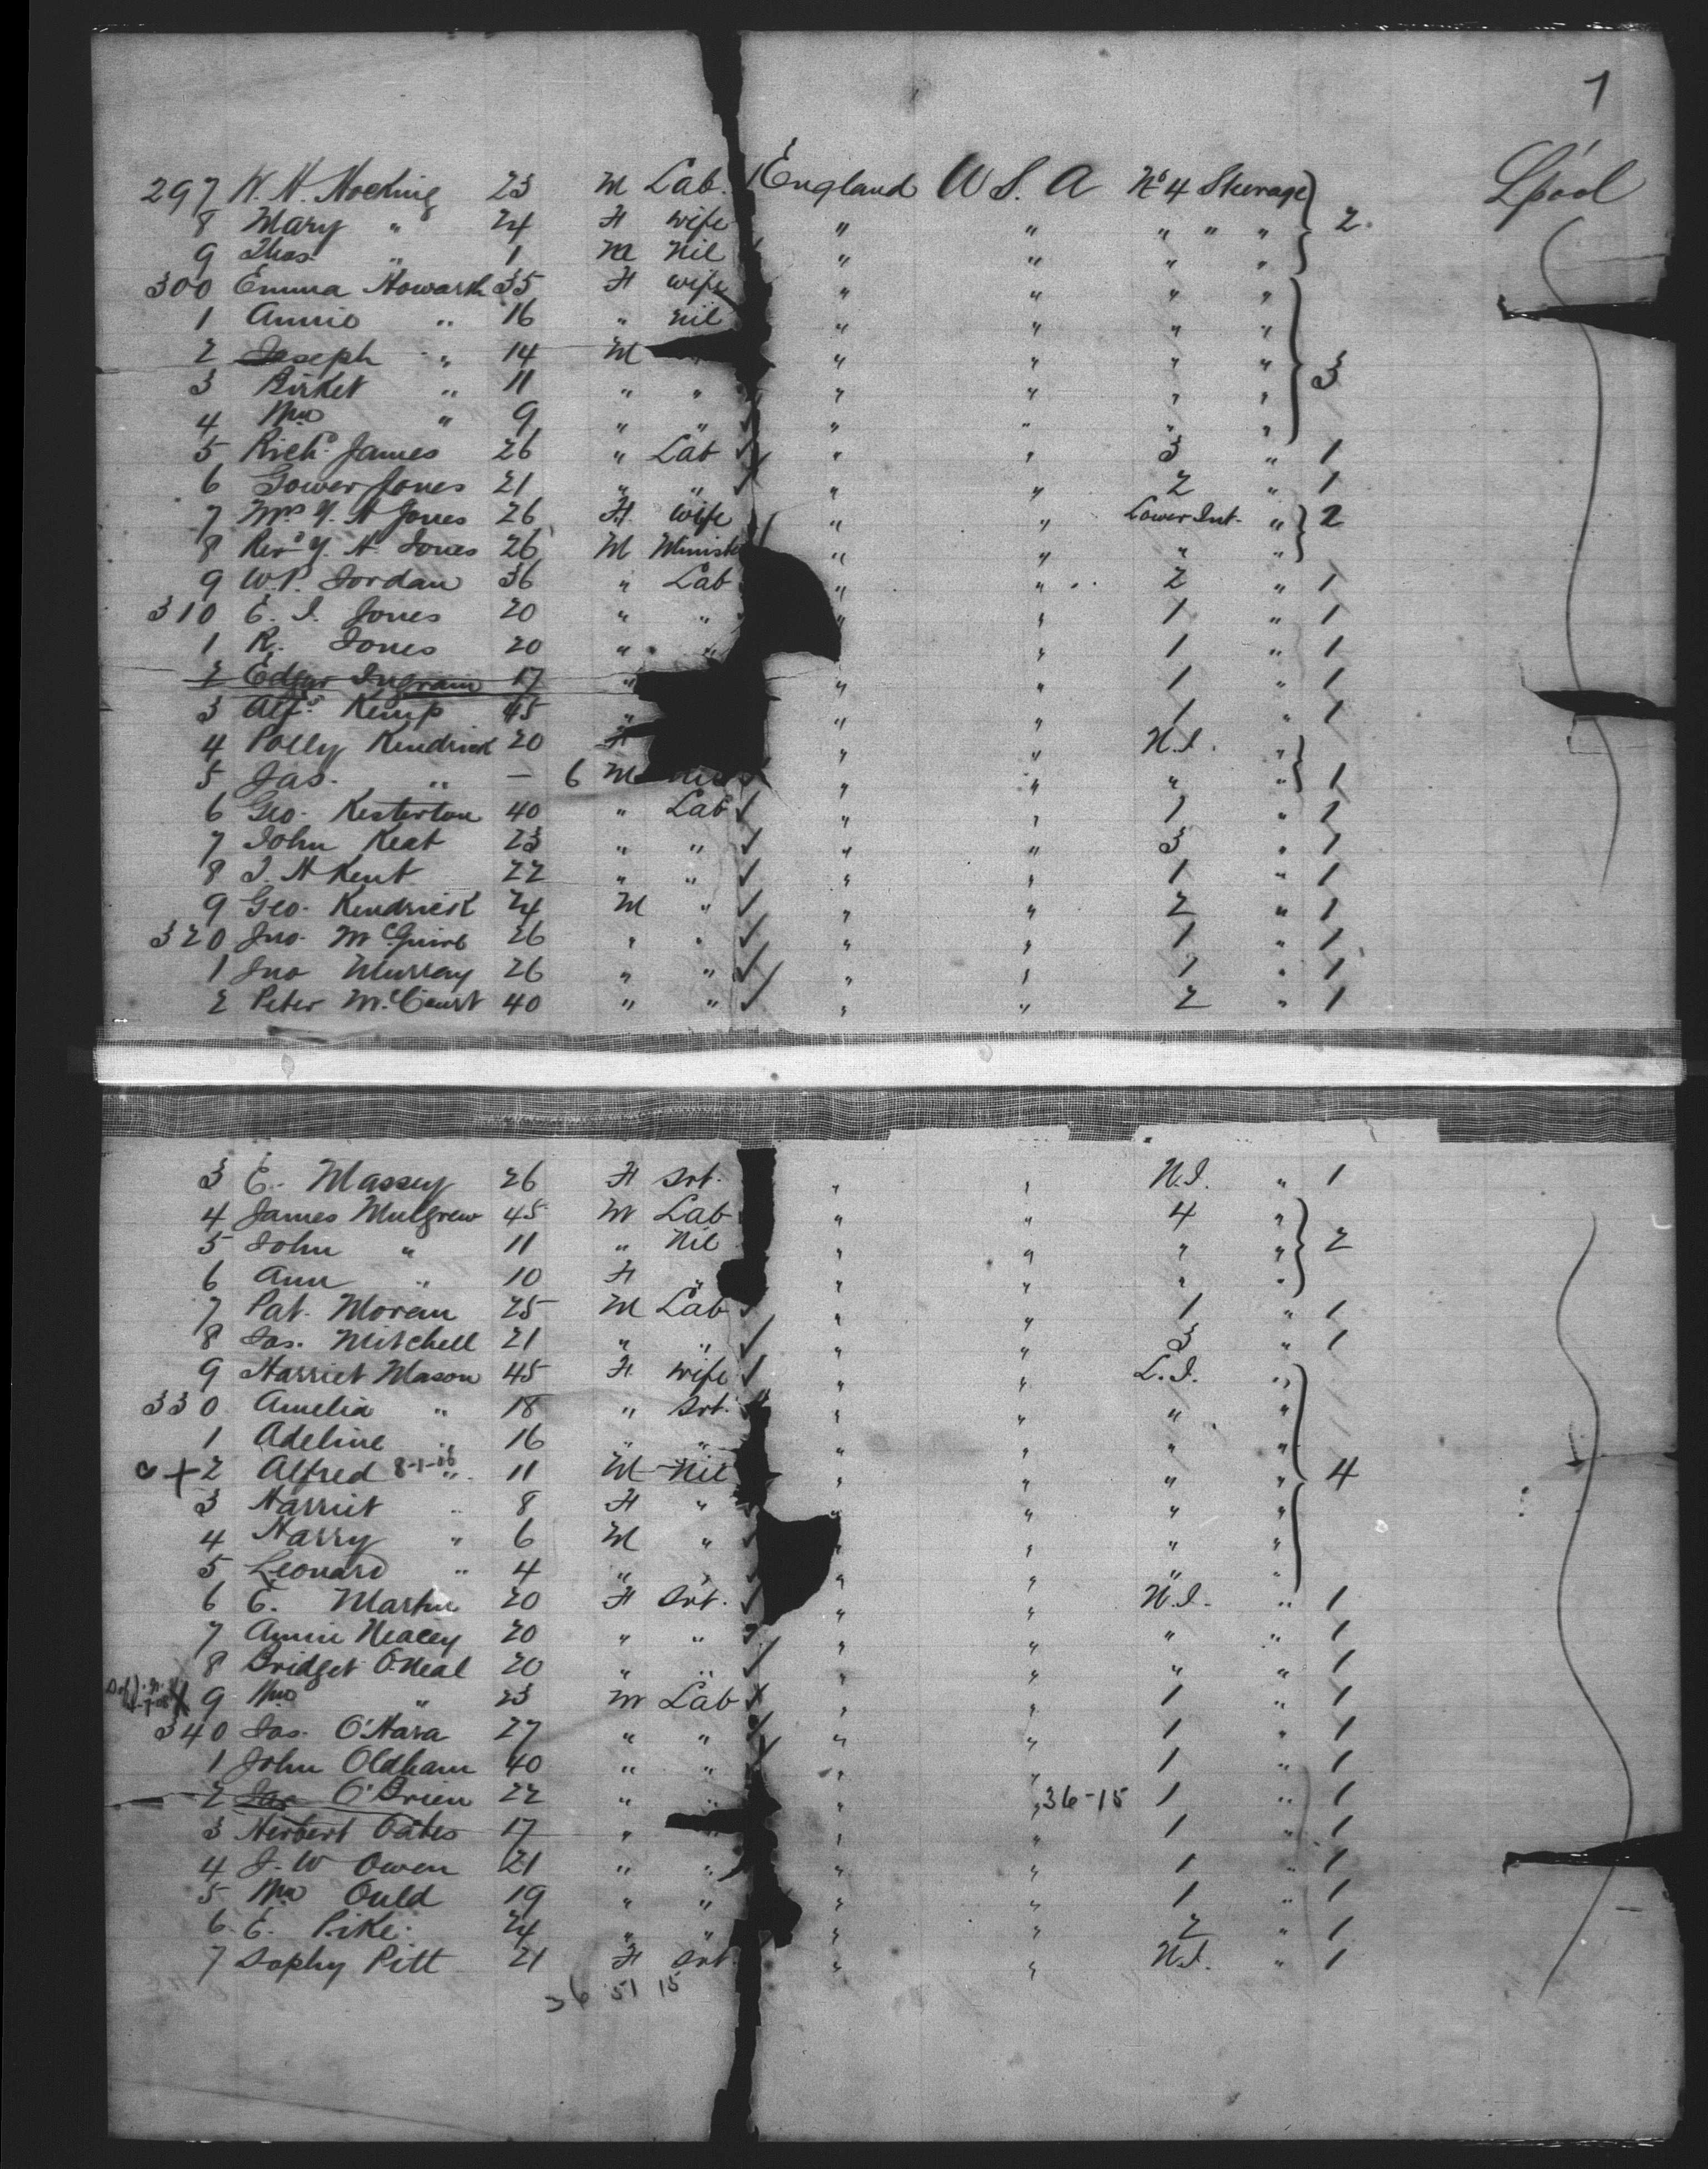 7
297 W. H. Hocking 23 M Lab. England U S. A No 4 Steerage 2. L'pool
8 Mary " 24 F wife " " " " "
9 Thos. " 1 M Nil " " " "
300 Emma Howarth 35 F wife " " " "
1 Annie " 16 " nil " " " "
2 Joseph " 14 M " " " " 3
3 Birket " 11 " " " " " "
4 Wm " 9 " " " " " "
5 Richd James 26 " Lab " " 3 " 1
6 Gower Jones 21 " " " " 2 " 1
7 Mrs Y. H Jones 26 F. wife " " Lower Int. " 2
8 Revd Y. H. Jones 26 M Minist " " " "
9 W.P. Jordan 36 " Lab " " 2 " 1
310 E. I. Jones 20 " " " " 1 " 1
1 R. Jones 20 " " " 1 " 1
2 Edgar Ingram 17 " " " 1 " 1
3 Alfd Kemp 45 " " " 1 " 1
4 Polly Kendrick 20 F " " N.I. "
5 Jas. " — 6 M Nil " " " " 1
6 Geo. Kesterton 40 " Lab " " 1 " 1
7 John Keat 23 " " " " 3 " 1
8 J. H Kent 22 " " " " 1 " 1
9 Geo. Kendrick 24 M " " " 2 " 1
320 Jno. McGuire 26 " " " " 1 " 1
1 Jno Murray 26 " " " " 1 " 1
2 Peter McCourt 40 " " " " 2 " 1
3 E. Massey 26 F Srt. " " N.I. " 1
4 James Mulgrew 45 M Lab " " 4 " 2
5 John " 11 " Nil " " " "
6 Ann " 10 F " " " " "
7 Pat. Moran 25 M Lab " " 1 " 1
8 Jas. Mitchell 21 " " " " 3 " 1
9 Harriet Mason 45 F. wife " " L.I. "
330 Amelia " 18 " Srt. " " " "
1 Adeline " 16 " " " " " "
+ 2 Alfred 8-1-06 " 11 M Nil " " " " 4
3 Harriet " 8 F " " " " "
4 Harry " 6 M " " " " "
5 Leonard " 4 " " " " " "
6 E. Martin 20 F Srt. " " N.I. " 1
7 Annie Neacey 20 " " " " " " 1
8 Bridget O'Neal 20 " " " " " " 1
X 9 Wm " 23 M Lab " " 1 " 1
340 Jas. O'Hara 27 " " " " 1 " 1
1 John Oldham 40 " " " " 1 " 1
2 Jas O'Brien 22 " " " " 36-15 1 " 1
3 Herbert Oates 17 " " " 1 " 1
4 J. W Owen 21 " " " " 1 " 1
5 Wm Ould 19 " " " " 1 " 1
6. E. Pike. 24 " " " " 2 " 1
7 Sophy Pitt 21 F Srt. " " N.I. " 1
36 51 15